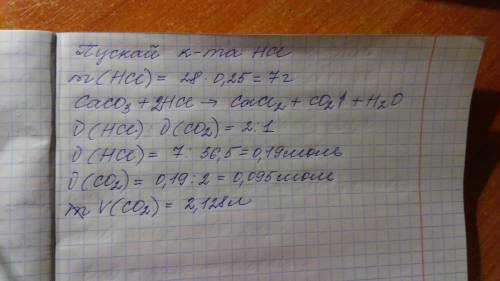 Пускай к-та HCl
m(HCl) = 28 · 0,25 = 7г
CaCO₃ + 2HCl → CaCl₂ + CO₂↑ + H₂O
ν(HCl) : ν(CO₂) = 2 : 1
ν(HCl) = 7 : 36,5 = 0,19моль
ν(CO₂) = 0,19 : 2 = 0,095моль
V(CO₂) = 2,128л